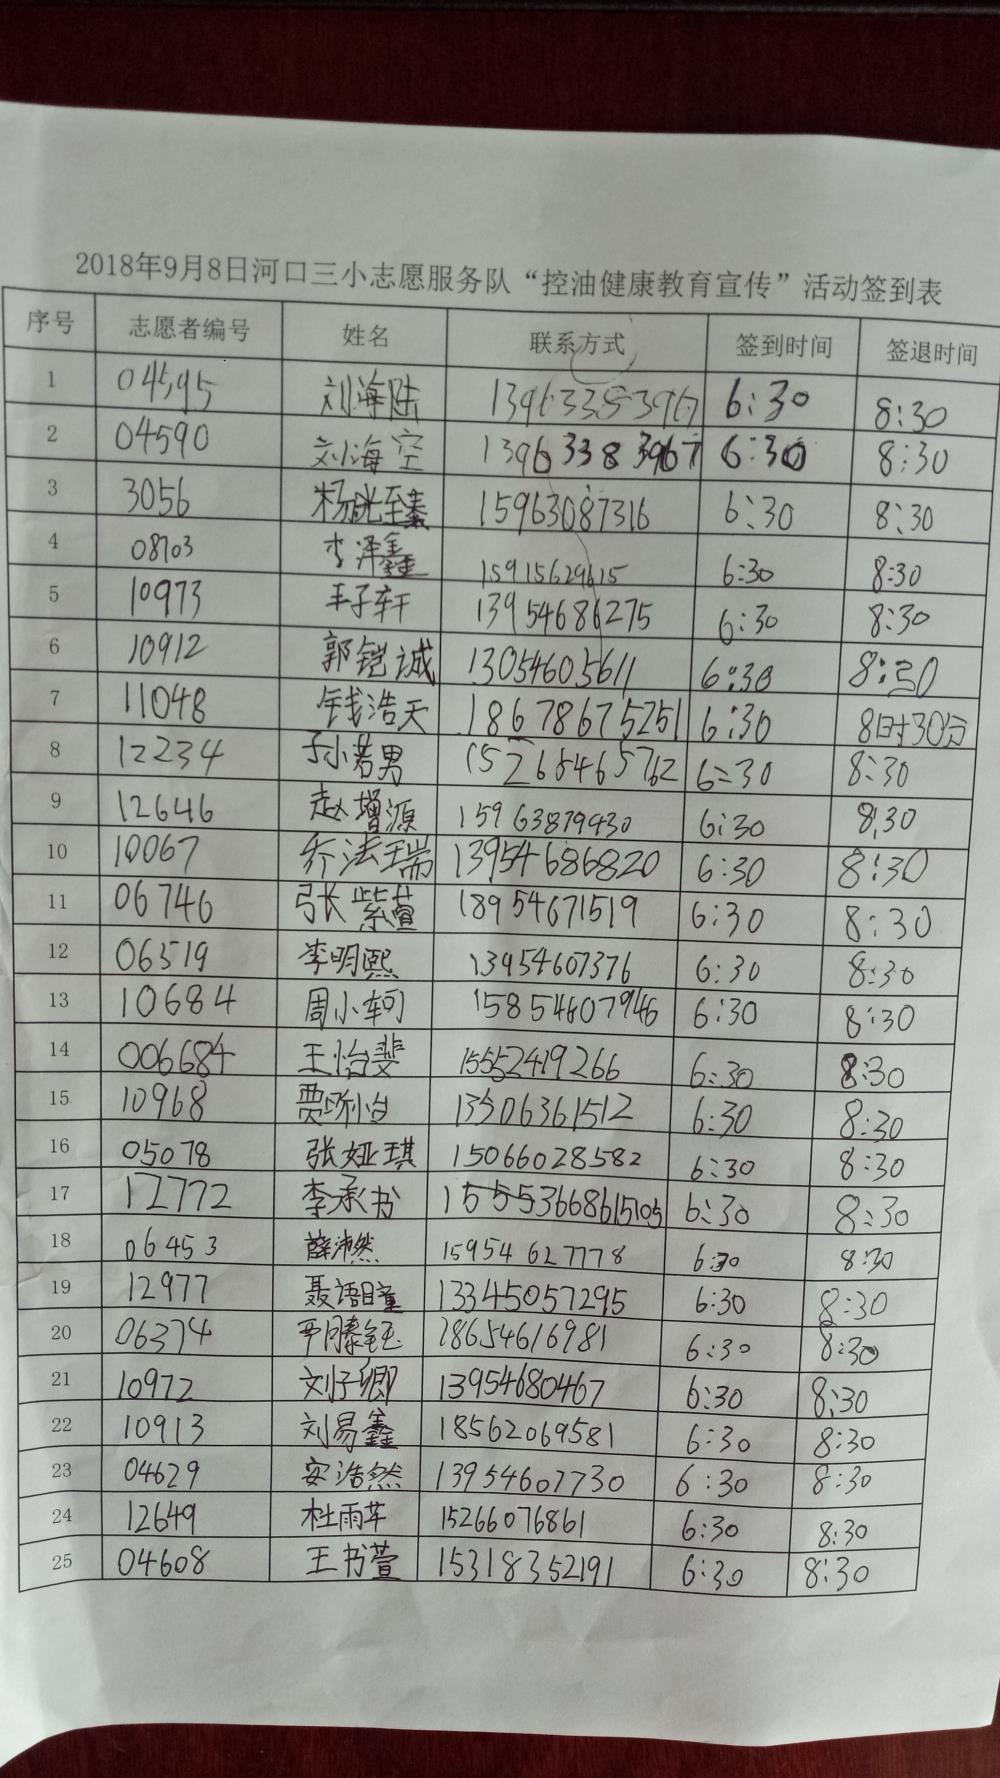 2018年9月8日河口三小志愿服务队“控油健康教育宣传”活动签到表
序号 志愿者编号 姓名 联系方式 签到时间 签退时间
1 04595 刘海陆 13963383967 6:30 8:30
2 04590 刘海空 13963383967 6:30 8:30
3 3056 杨晄至蓁 15963087316 6:30 8:30
4 08703 李泽鑫 15915629615 6:30 8:30
5 10973 丰子轩 13954686275 6:30 8:30
6 10912 郭铠诚 13054605611 6:30 8:30
7 11048 钱浩天 18678675251 6:30 8时30分
8 12234 孙若男 15268465762 6:30 8:30
9 12646 赵增源 15963879430 6:30 8:30
10 10067 乔法瑞 13954686820 6:30 8:30
11 06746 张紫萱 18954671519 6:30 8:30
12 06519 李明熙 13954607376 6:30 8:30
13 10684 周小轲 15854607946 6:30 8:30
14 006684 王怡斐 15552419266 6:30 8:30
15 10968 贾 13506361512 6:30 8:30
16 05078 张娅琪 15066028582 6:30 8:30
17 12772 李承书 6:30 8:30
18 06453 薛沛然 15954627778 6:30 8:30
19 12977 聂语瞳 13345057295 6:30 8:30
20 06374 18654616981 6:30 8:30
21 10972 刘子卿 13954680467 6:30 8:30
22 10913 刘易鑫 18562069581 6:30 8:30
23 04629 安浩然 13954607730 6:30 8:30
24 12649 杜雨芊 15266076861 6:30 8:30
25 04608 王书萱 15318352191 6:30 8:30